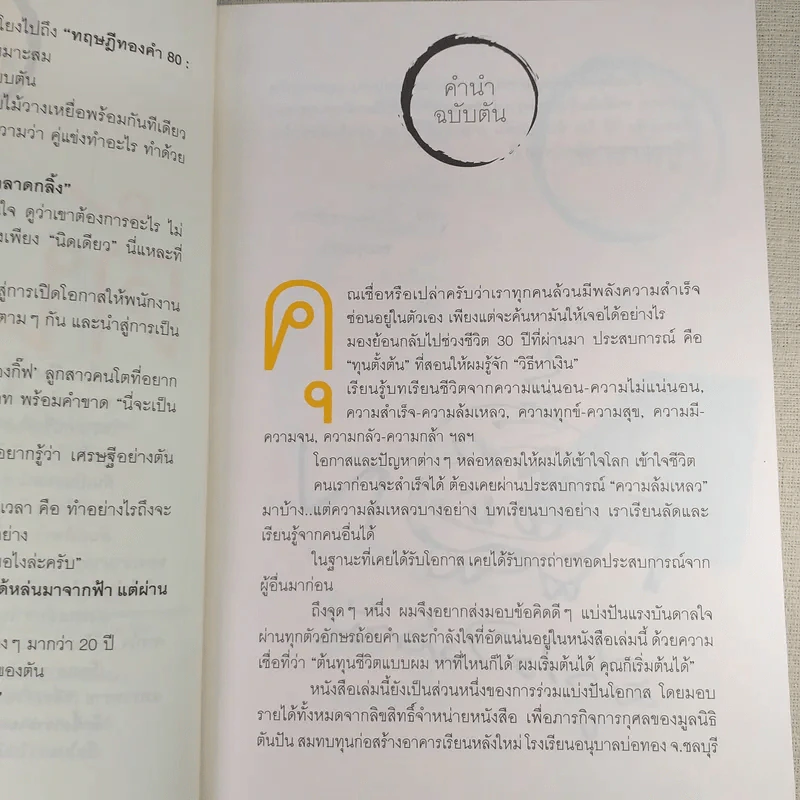 โยงไปถึง “ทฤษฎีทองคำ 80 :
มาะสม
บบตัน
ไม้วางเหยื่อพร้อมกันทีเดียว
ความว่า คู่แข่งทำอะไร ทำด้วย
ลาดกลิ้ง”
ใจ ดูว่าเขาต้องการอะไร ไม่
งเพียง “นิดเดียว” นี่แหละที่
สู่การเปิดโอกาสให้พนักงาน
ตามๆ กัน และนำสู่การเป็น
องกิ๊ฟ” ลูกสาวคนโตที่อยาก
ท พร้อมคำขาด “นี่จะเป็น
อยากรู้ว่า เศรษฐีอย่างตัน
เวลา คือ ทำอย่างไรถึงจะ
อย่าง
อไงล่ะครับ”
ด้หล่นมาจากฟ้า แต่ผ่าน
งๆ มากว่า 20 ปี
ของตัน
คำนำ
ฉบับตัน
คุณเชื่อหรือเปล่าครับว่าเราทุกคนล้วนมีพลังความสำเร็จ
ซ่อนอยู่ในตัวเอง เพียงแต่จะค้นหามันให้เจอได้อย่างไร
มองย้อนกลับไปช่วงชีวิต 30 ปีที่ผ่านมา ประสบการณ์ คือ
“ทุนตั้งต้น” ที่สอนให้ผมรู้จัก “วิธีหาเงิน”
เรียนรู้บทเรียนชีวิตจากความแน่นอน-ความไม่แน่นอน,
ความสำเร็จ-ความล้มเหลว, ความทุกข์-ความสุข, ความมี-
ความจน, ความกลัว-ความกล้า ฯลฯ
โอกาสและปัญหาต่างๆ หล่อหลอมให้ผมได้เข้าใจโลก เข้าใจชีวิต
คนเราก่อนจะสำเร็จได้ ต้องเคยผ่านประสบการณ์ “ความล้มเหลว”
มาบ้าง..แต่ความล้มเหลวบางอย่าง บทเรียนบางอย่าง เราเรียนลัดและ
เรียนรู้จากคนอื่นได้
ในฐานะที่เคยได้รับโอกาส เคยได้รับการถ่ายทอดประสบการณ์จาก
ผู้อื่นมาก่อน
ถึงจุดๆ หนึ่ง ผมจึงอยากส่งมอบข้อคิดดีๆ แบ่งปันแรงบันดาลใจ
ผ่านทุกตัวอักษรถ้อยคำ และกำลังใจที่อัดแน่นอยู่ในหนังสือเล่มนี้ ด้วยความ
เชื่อที่ว่า “ต้นทุนชีวิตแบบผม หาที่ไหนก็ได้ ผมเริ่มต้นได้ คุณก็เริ่มต้นได้”
หนังสือเล่มนี้ยังเป็นส่วนหนึ่งของการร่วมแบ่งปันโอกาส โดยมอบ
รายได้ทั้งหมดจากลิขสิทธิ์จำหน่ายหนังสือ เพื่อภารกิจการกุศลของมูลนิธิ
ตันปัน สมทบทุนก่อสร้างอาคารเรียนหลังใหม่ โรงเรียนอนุบาลบ่อทอง จ.ชลบุรี